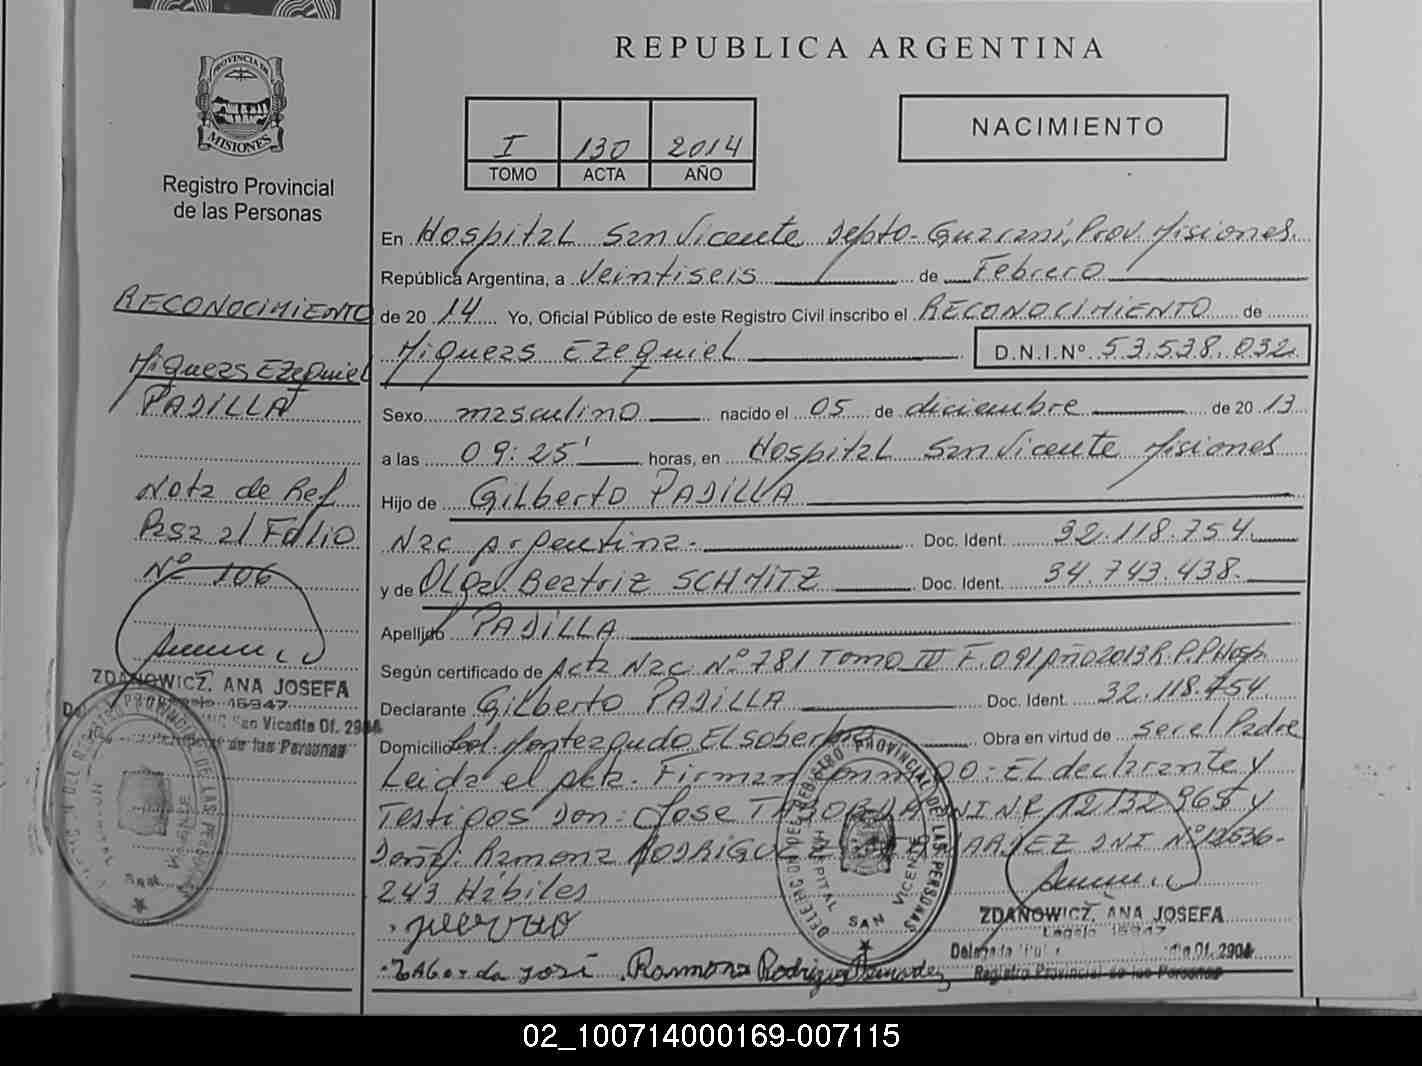 REPUBLICA ARGENTINA
PROVINCIA DE
MISIONES
Registro Provincial
de las Personas
I 130 2014
TOMO ACTA AÑO
NACIMIENTO
RECONOCIMIENTO
Miqueas Ezequiel
PADILLA
Nota de Ref
Pasa al Folio
Nº 106
ZDANOWICZ, ANA JOSEFA
Legajo 15947
San Vicente Of. 2904
de las Personas
En Hospital San Vicente Depto. Guarani, Prov. Misiones
República Argentina, a Veintiseis de Febrero
de 20 14 Yo, Oficial Público de este Registro Civil inscribo el RECONOCIMIENTO de
Miqueas Ezequiel D.N.I.Nº 53.538.032
Sexo masculino nacido el 05 de diciembre de 20 13
a las 09:25' horas, en Hospital San Vicente Misiones
Hijo de Gilberto PADILLA
Nac Argentina.- Doc. Ident. 32.118.754.
y de Olga Beatriz SCHMITZ Doc. Ident. 34.743.438.
Apellido PADILLA
Según certificado de Acta Nac. Nº 781 Tomo IV F. 091 Año 2013 R.P.P Hosp
Declarante Gilberto PADILLA Doc. Ident. 32.118.754
Domicilio Col. Monteagudo El soberbio Obra en virtud de ser el Padre
Leida el acta. Firman conmigo: El declarante y
Testigos Don: Jose TABORDA DNI Nº 12.132.965 y
Doña. Ramona RODRIGUEZ DNI Nº
243 Hábiles
Taborda José Ramona Rodriguez
DELEGACION DEL REGISTRO PROVINCIAL DE LAS PERSONAS
HOSPITAL SAN VICENTE
ZDANOWICZ, ANA JOSEFA
Legajo 15947
Of. 2904
Registro Provincial de las Personas
02_100714000169-007115